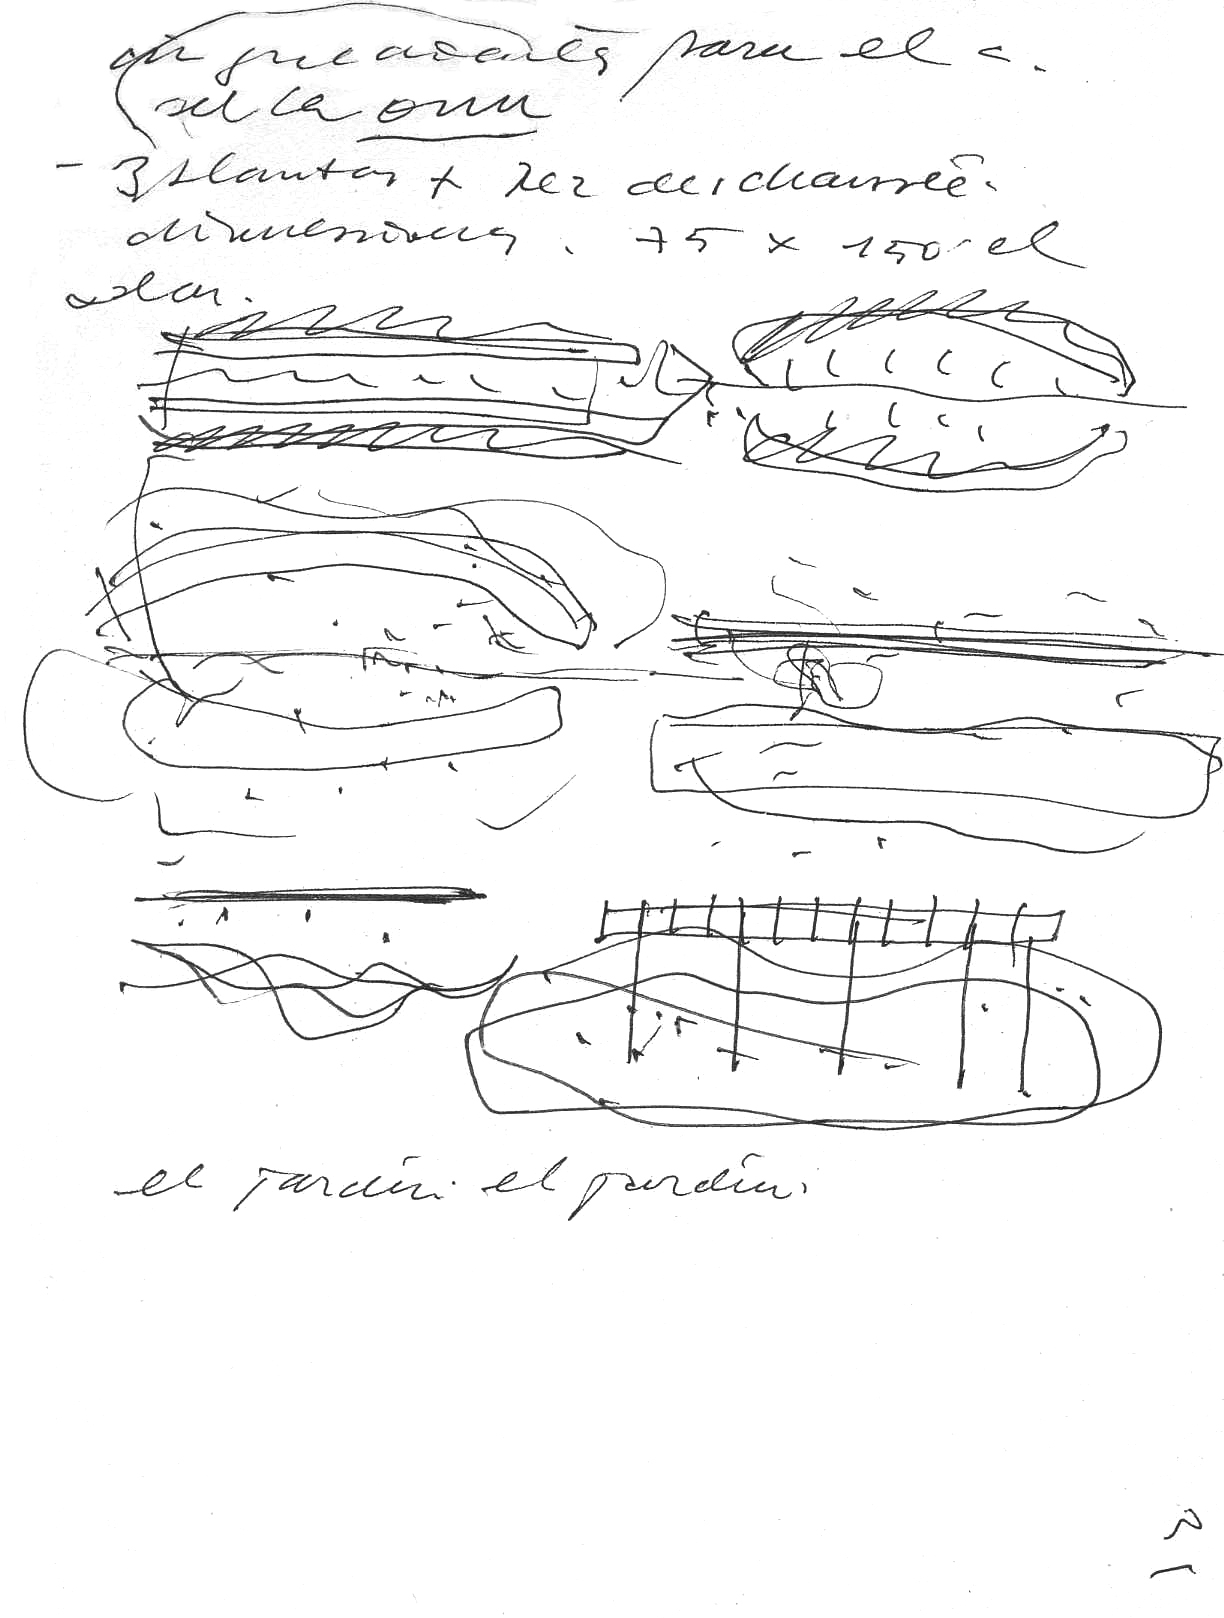 para el c.
de la onu
- 3 plantas + rez de chaussée.
dimensiones. 75 x 150 el
solar.
el jardín. el jardín.